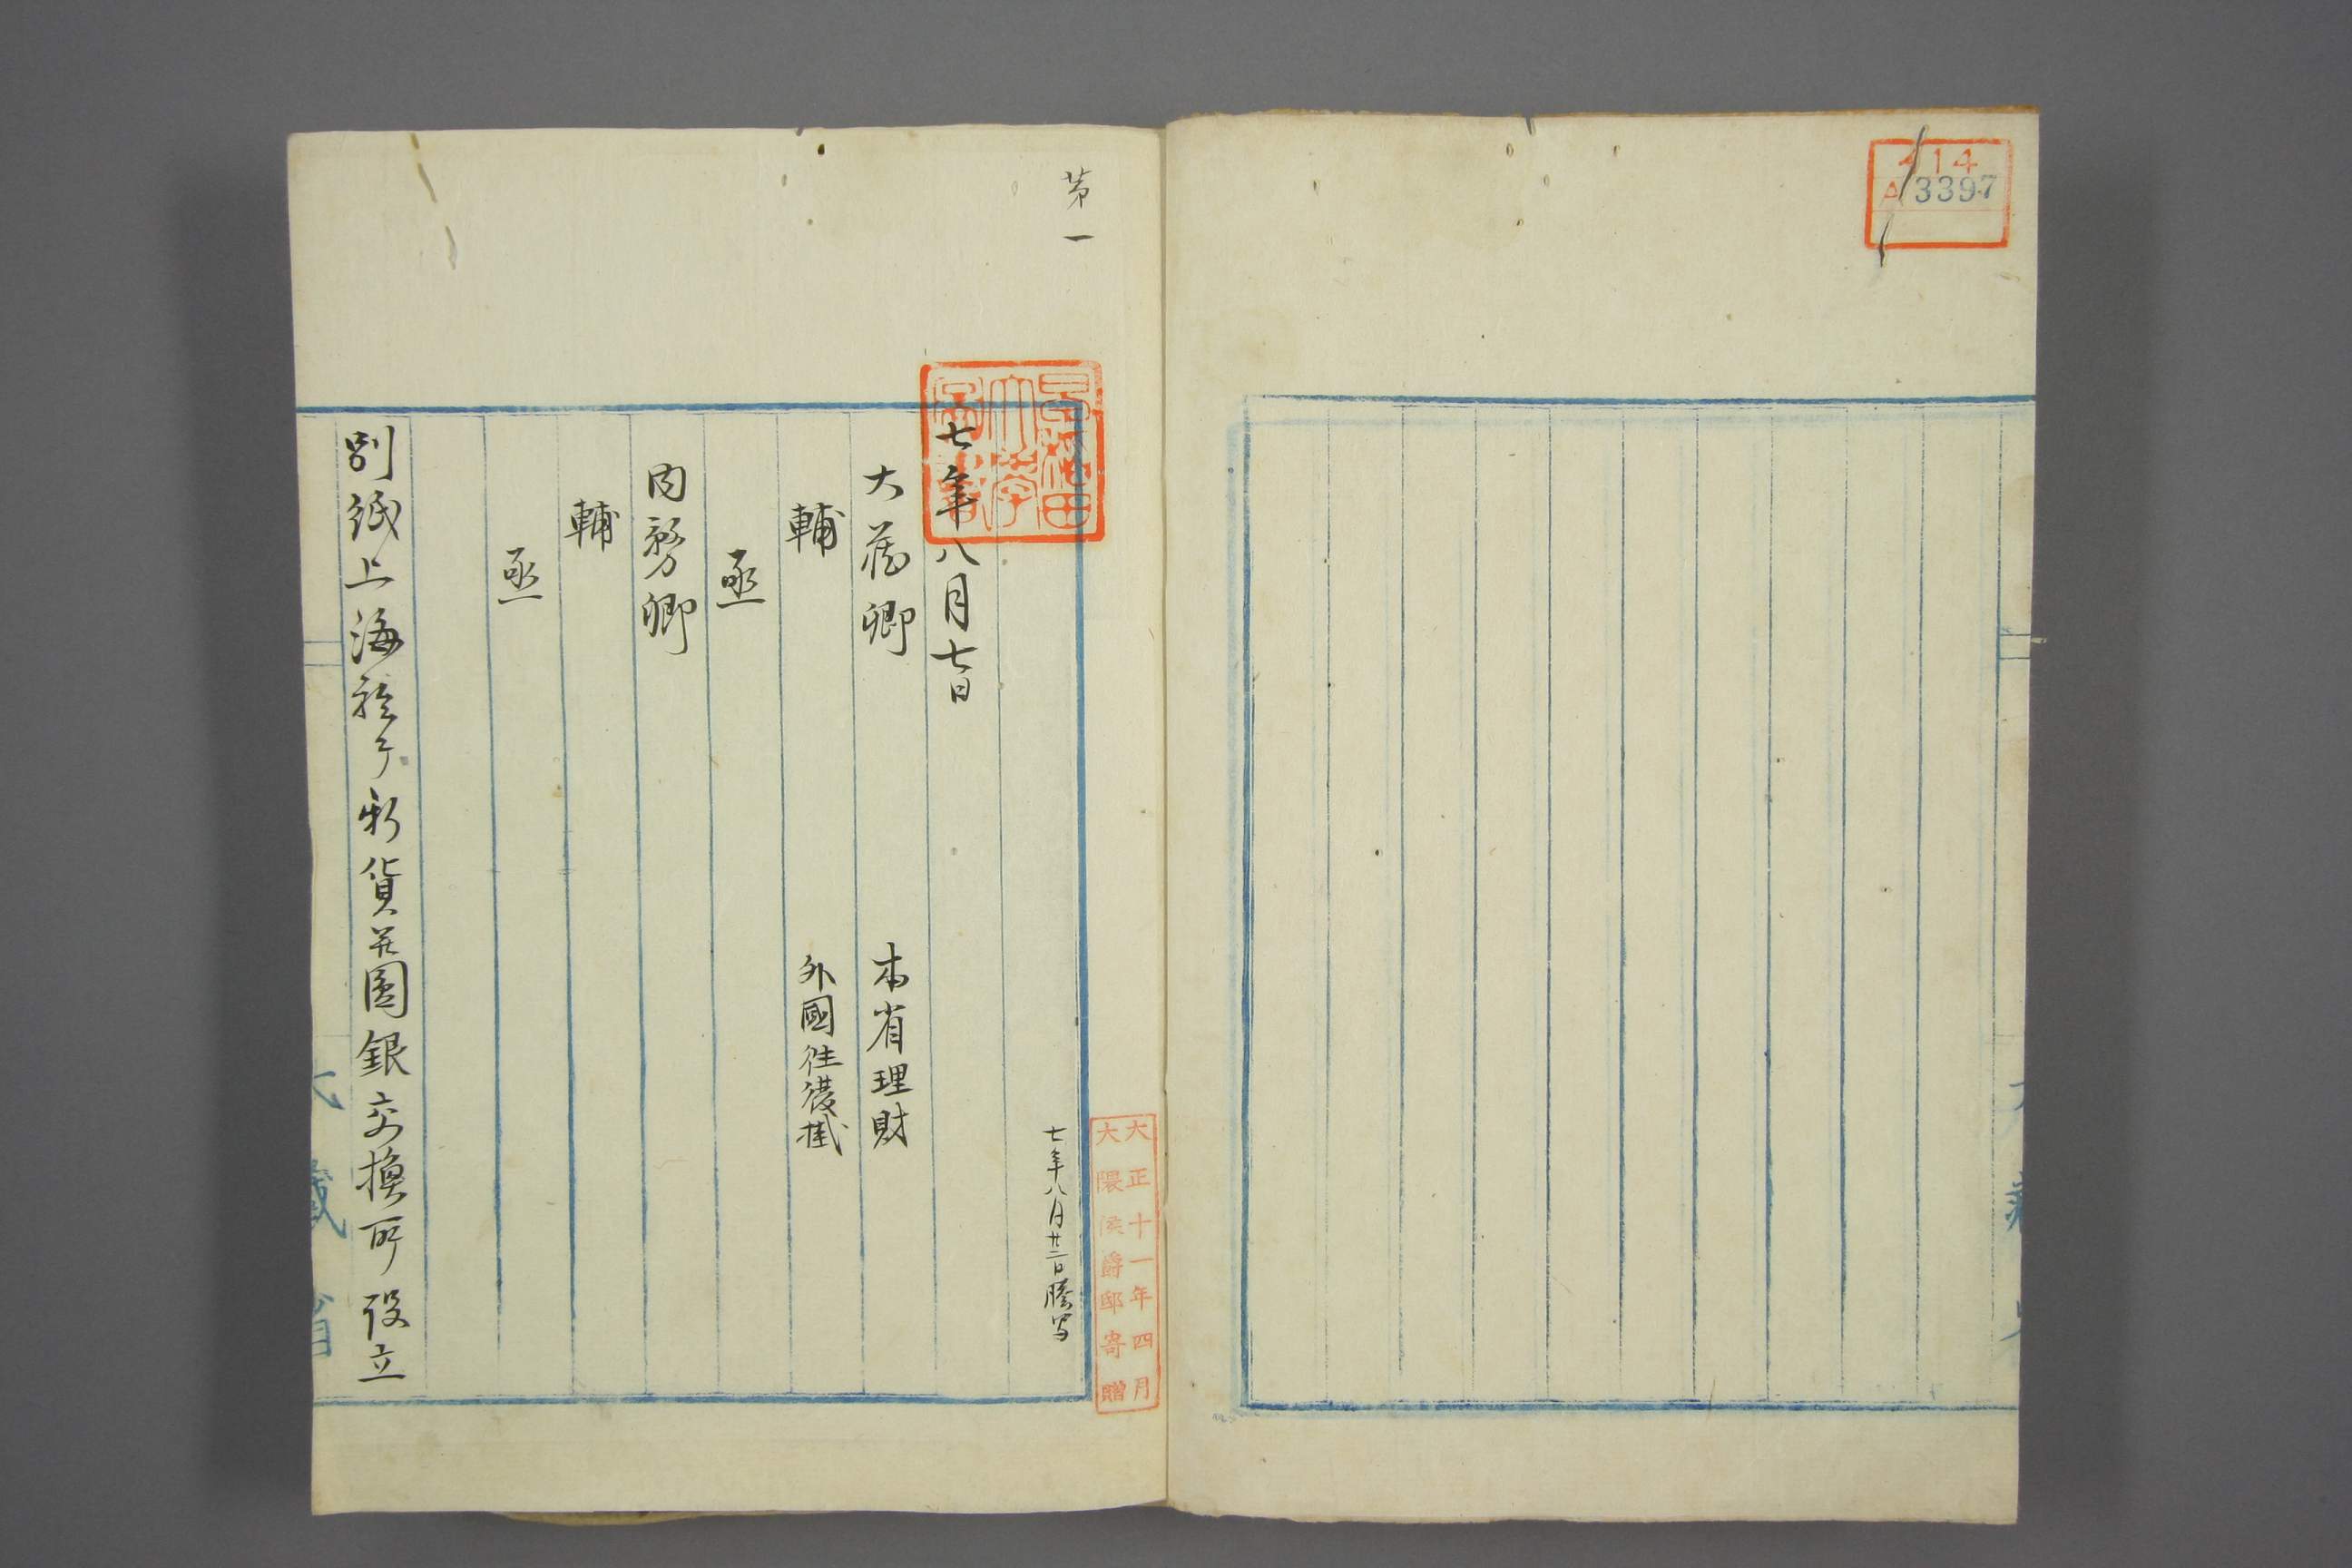 イ14
A3397
第一
早稲田大学図書
大正十一年四月
大隈侯爵邸寄贈
七年八月廿二日謄写
七年八月七日
大蔵卿 本省理財
輔 外國往復掛
丞
内務卿
輔
丞
別紙上海於テ新貨並圓銀交換所設立
大藏省